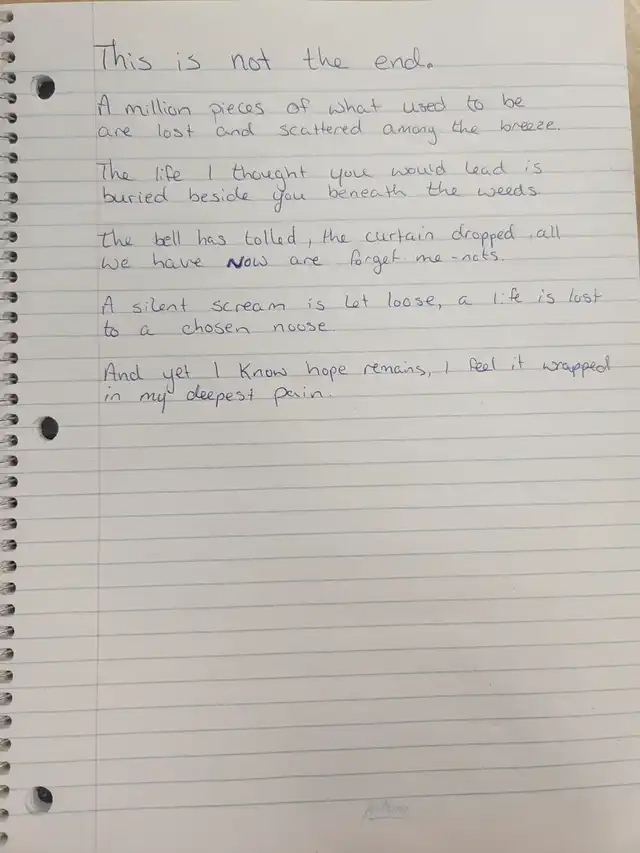 This is not the end.
A million pieces of what used to be
are lost and scattered among the breeze.
The life I thought you would lead is
buried beside you beneath the weeds
The bell has tolled, the curtain dropped, all
we have NOW are forget me-nots.
A silent scream is let loose, a life is lost
to a chosen noose.
And yet I know hope remains, I feel it wrapped
in my deepest pain.